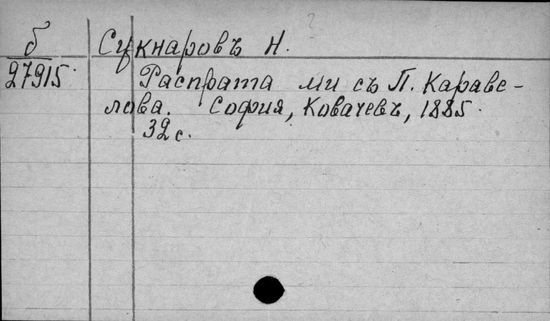 б Сукнаровъ Н.
27915 Распрата ми съ П. Караве-
лова. София, Ковачевъ, 1885.
32 с.